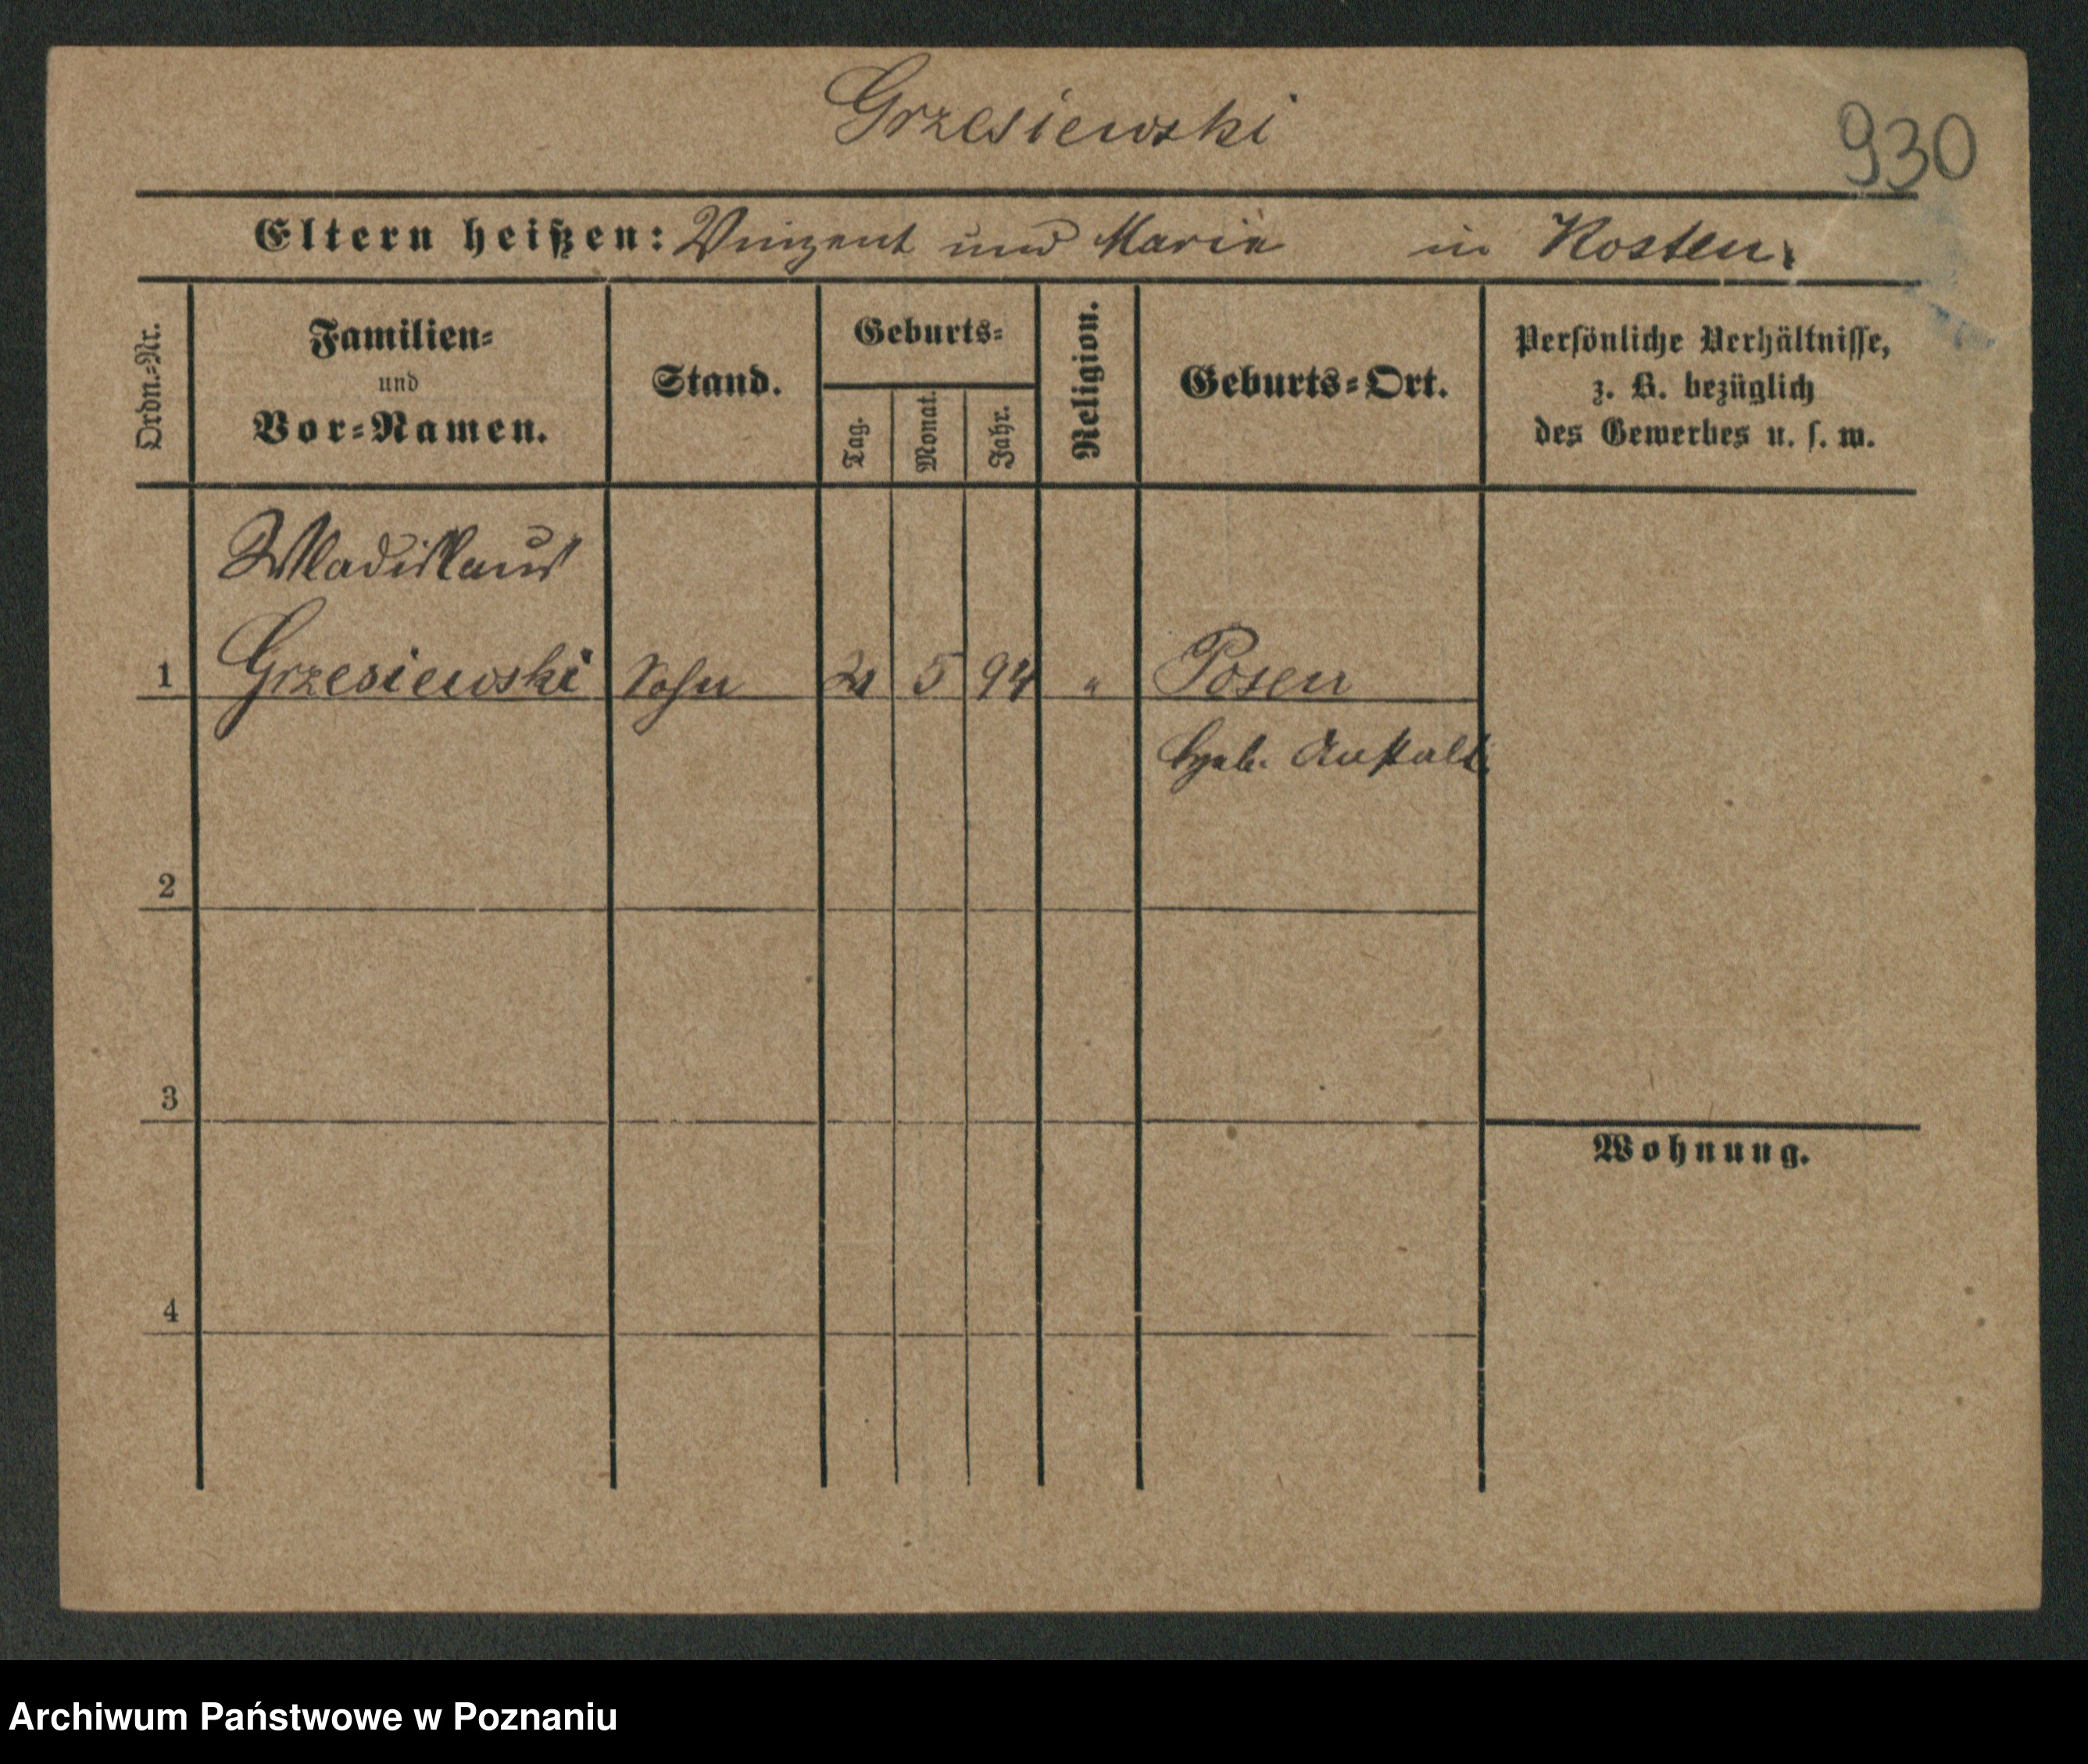 Grzesiewski
930
Eltern heißen: Vinzent und Maria in Kosten.
Ordn.=Nr.
Familien=
und
Vor=Namen.
Stand.
Geburts=
Tag.
Monat.
Jahr.
Religion.
Geburts=Ort.
Persönliche Verhältnisse,
z. B. bezüglich
des Gewerbes u. s. w.
Wladislaus
1 Grzesiewski Sohn 5 94 " Posen
Anstalt.
2
3
Wohnung.
4
Archiwum Państwowe w Poznaniu